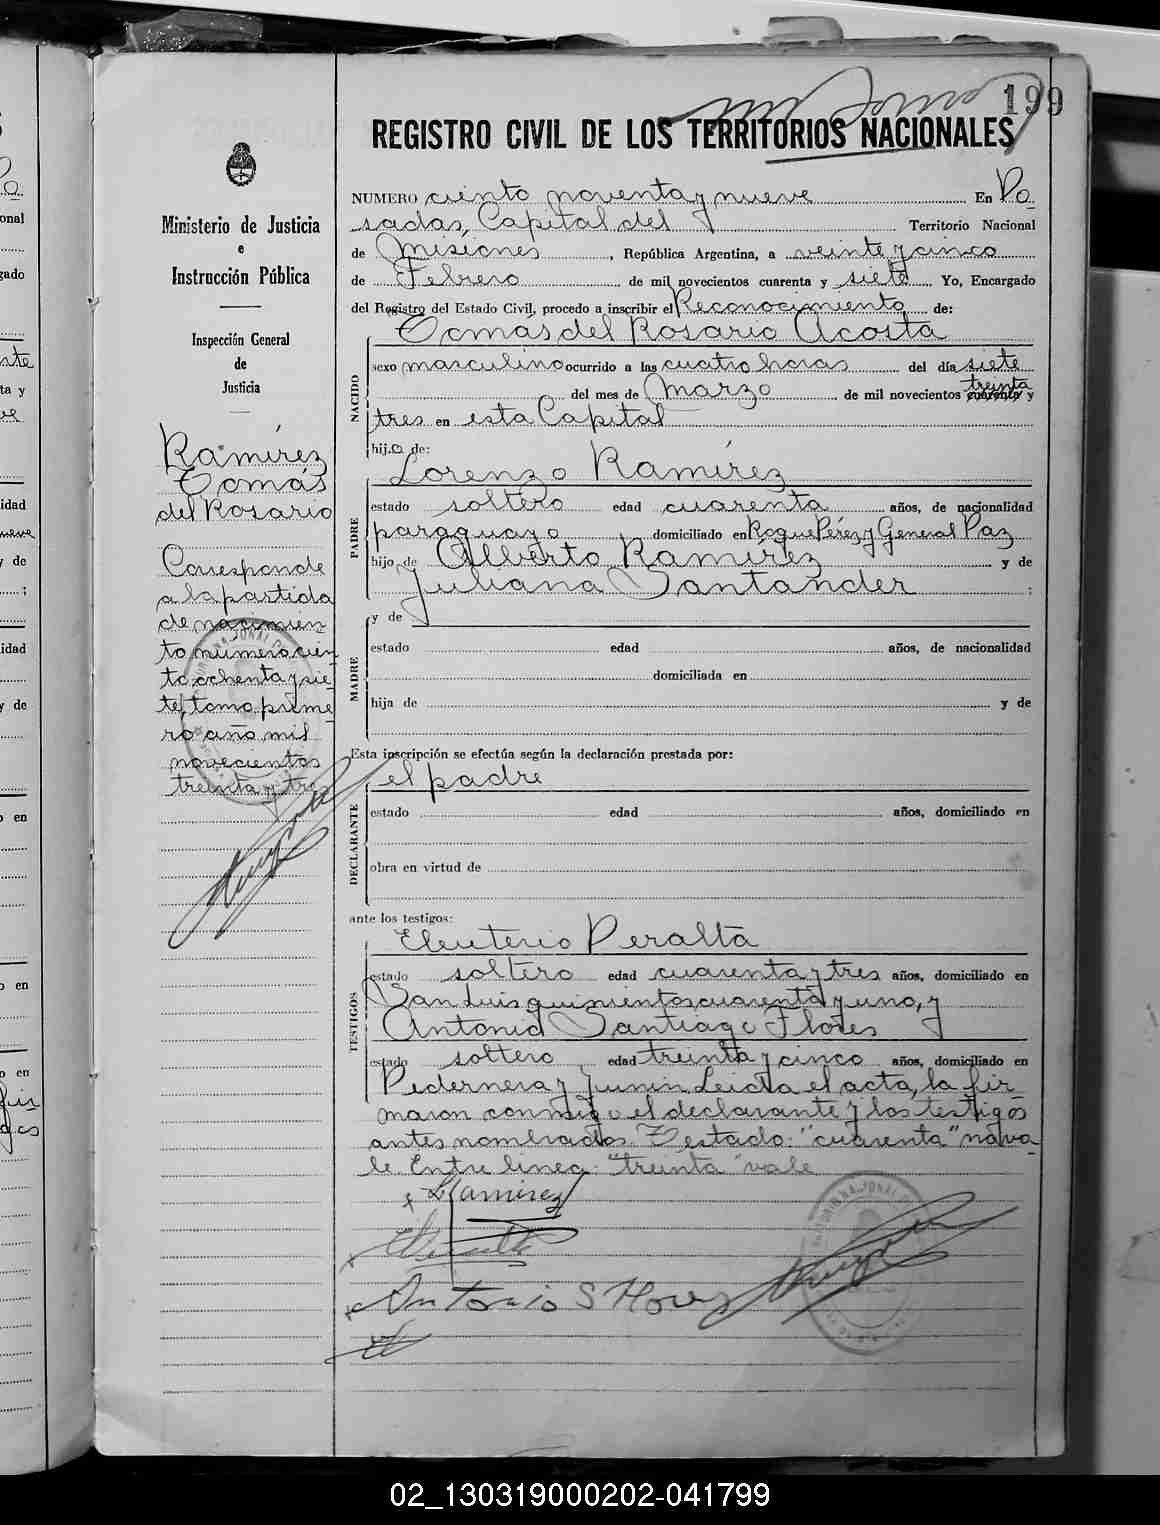 199
REGISTRO CIVIL DE LOS TERRITORIOS NACIONALES
Ministerio de Justicia
e
Instrucción Pública
Inspección General
de
Justicia
Ramírez
Tomás
del Rosario
Corresponde
a la partida
de nacimien
to numero cien
to ochenta y sie
te, tomo prime
ro año mil
novecientos
treinta y tres
NUMERO ciento noventa y nueve En Po
sadas, Capital del Territorio Nacional
de Misiones, República Argentina, a veinte y cinco
de Febrero de mil novecientos cuarenta y siete Yo, Encargado
del Registro del Estado Civil, procedo a inscribir el Reconocimiento de:
Tomas del Rosario Acosta
NACIDO
sexo masculino ocurrido a las cuatro horas del día siete
treinta
del mes de Marzo de mil novecientos cuarenta y
tres en esta Capital
hijo de:
Lorenzo Ramírez
PADRE
estado soltero edad cuarenta años, de nacionalidad
paraguayo domiciliado en Roque Pérez y General Paz
hijo de Alberto Ramírez y de
Juliana Santander ;
y de
MADRE
estado edad años, de nacionalidad
domiciliada en
hija de y de
Esta inscripción se efectúa según la declaración prestada por:
el padre
DECLARANTE
estado edad años, domiciliado en
obra en virtud de
ante los testigos:
Eleuterio Peralta
TESTIGOS
estado soltero edad cuarenta y tres años, domiciliado en
San Luis quinientos cuarenta y uno, y
Antonio Santiago Flores
estado soltero edad treinta y cinco años, domiciliado en
Pedernera y Junin Leida el acta, la fir
maron conmigo el declarante y los testigos
antes nombrados. Testado: "cuarenta" no va
le. Entre linea: "treinta" vale
L Ramirez
Antonio S Flores
02_130319000202-041799